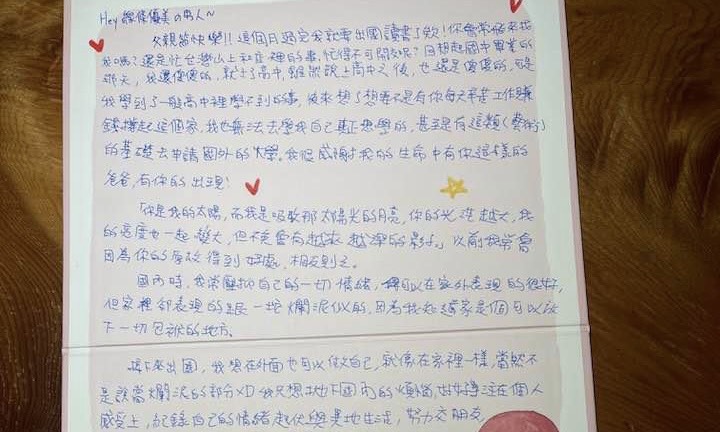 Hey 線條優美の男人～
父親節快樂!! 這個月過完我就要出國讀書了欸!你會常飛來找
我嗎?還是忙台灣山上和 裡的事,忙得不可開交呢?回想起國中畢業的
那天,我還傻傻的,就上了高中,雖然說上高中之後,也還是傻傻的,但是
我學到了一般高中裡學不到的事,後來想了想要不是有你每天辛苦工作賺
錢撐起這個家,我也無法去學我自己真正想學的,甚至是有這類(藝術)
的基礎去申請國外的大學。我很感謝我的生命中有你這樣的
爸爸,有你的出現!
「你是我的太陽,而我是吸收那太陽光的月亮,你的光 越大,我
的亮度也一起變大,但不免會有越來越 的影子」以前我常會
因為你的 得到好處,相反則之。
國中時,我常壓抑自己的一切情緒, 可以在家外表現的很好,
但家裡卻表現的跟一坨爛泥似的,因為我知道家是個可以放
下一切包袱的地方。
接下來出國,我想在外面也可以做自己,就像在家裡一樣,當然不
是說當爛泥的部分XD我只想拋下國內的煩惱 好好專注在個人
感受上,記錄自己的情緒起伏與異地生活,努力交朋友